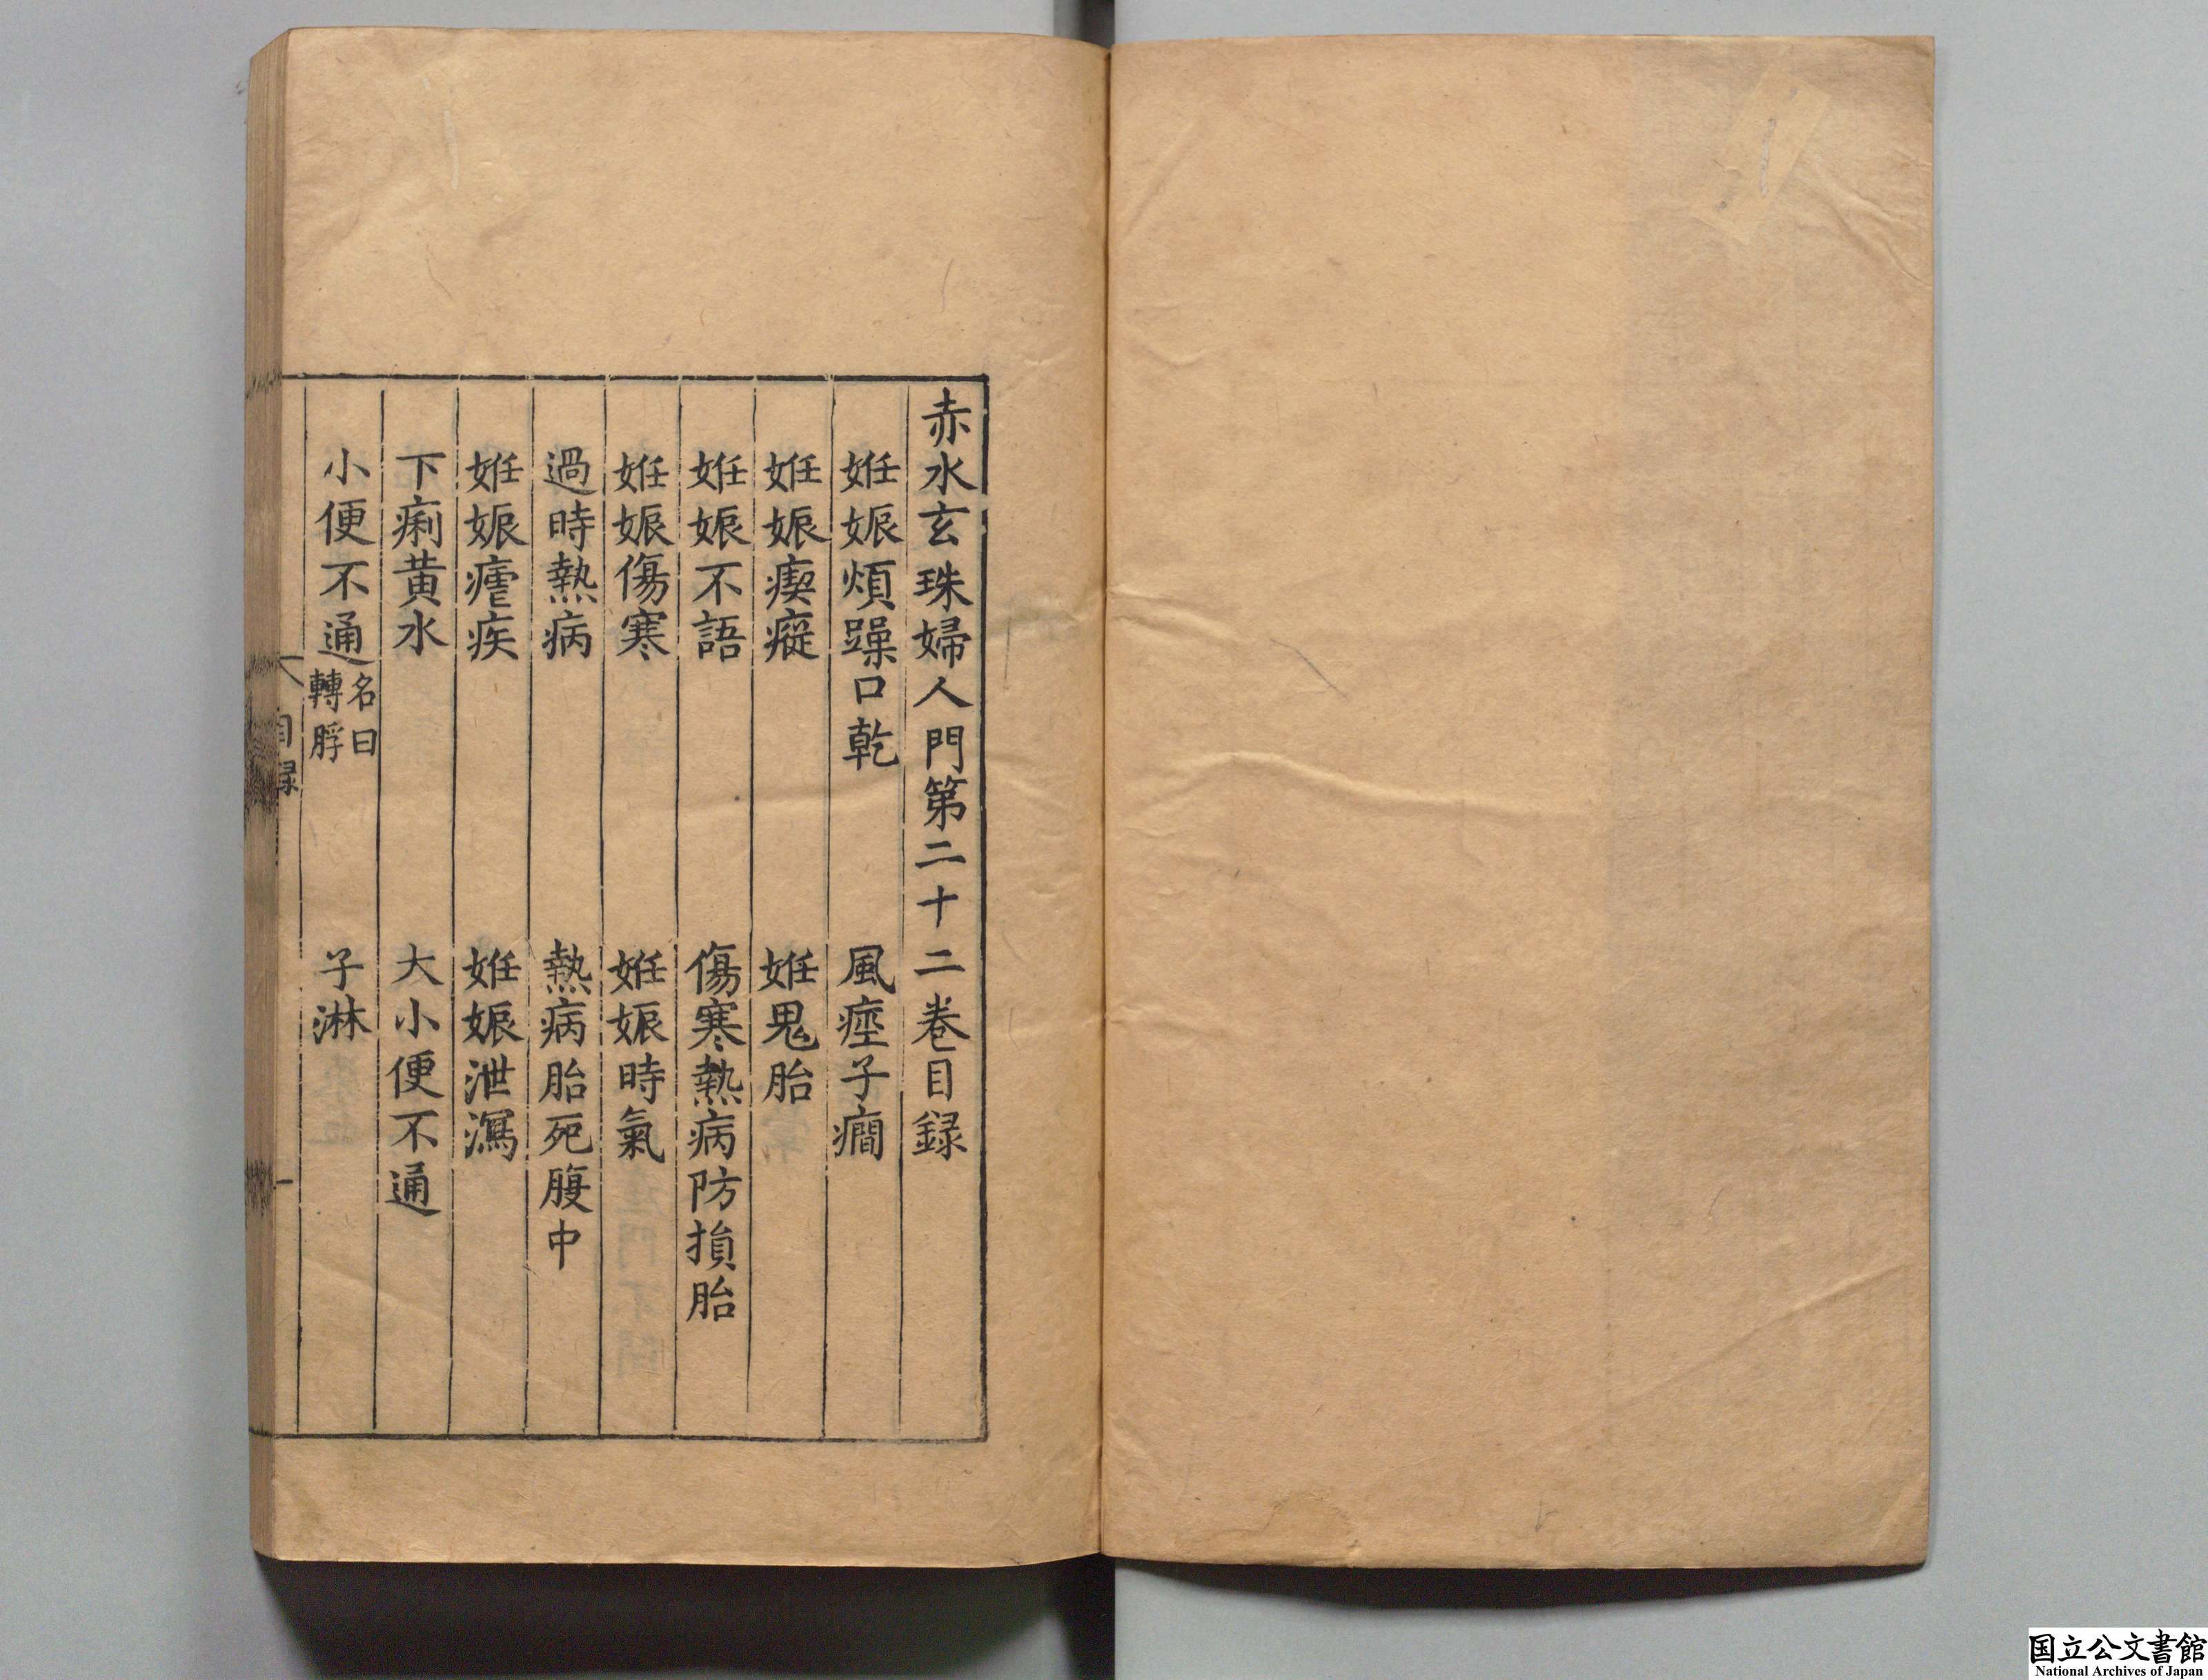 赤水玄珠婦人門第二十二巻目録
姙娠煩躁口乾　風痙子癇
姙娠瘈瘲　姙鬼胎
姙娠不語　傷寒熱病防損胎
姙娠傷寒　姙娠時氣
過時熱病　熱病胎死腹中
姙娠瘧疾　姙娠泄瀉
下痢黄水　大小便不通
小便不通名曰轉脬　子淋
目録　一
国立公文書館
National Archives of Japan